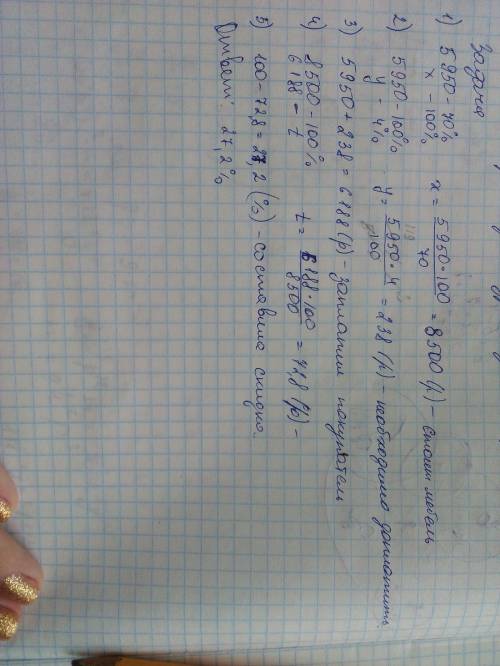 Задача
1) 5950 - 70%
x - 100%
x = 5950·100 / 70 = 8500 (р) - стоит мебель
2) 5950 - 100%
y - 4%
y = 5950·4 / 100 = 238 (р) - необходимо доплатить
3) 5950 + 238 = 6188 (р) - заплатил покупатель
4) 8500 - 100%
6188 - t
t = 6188·100 / 8500 = 72,8 (%) -
5) 100 - 72,8 = 27,2 (%) - составила скидка.
Ответ: 27,2%